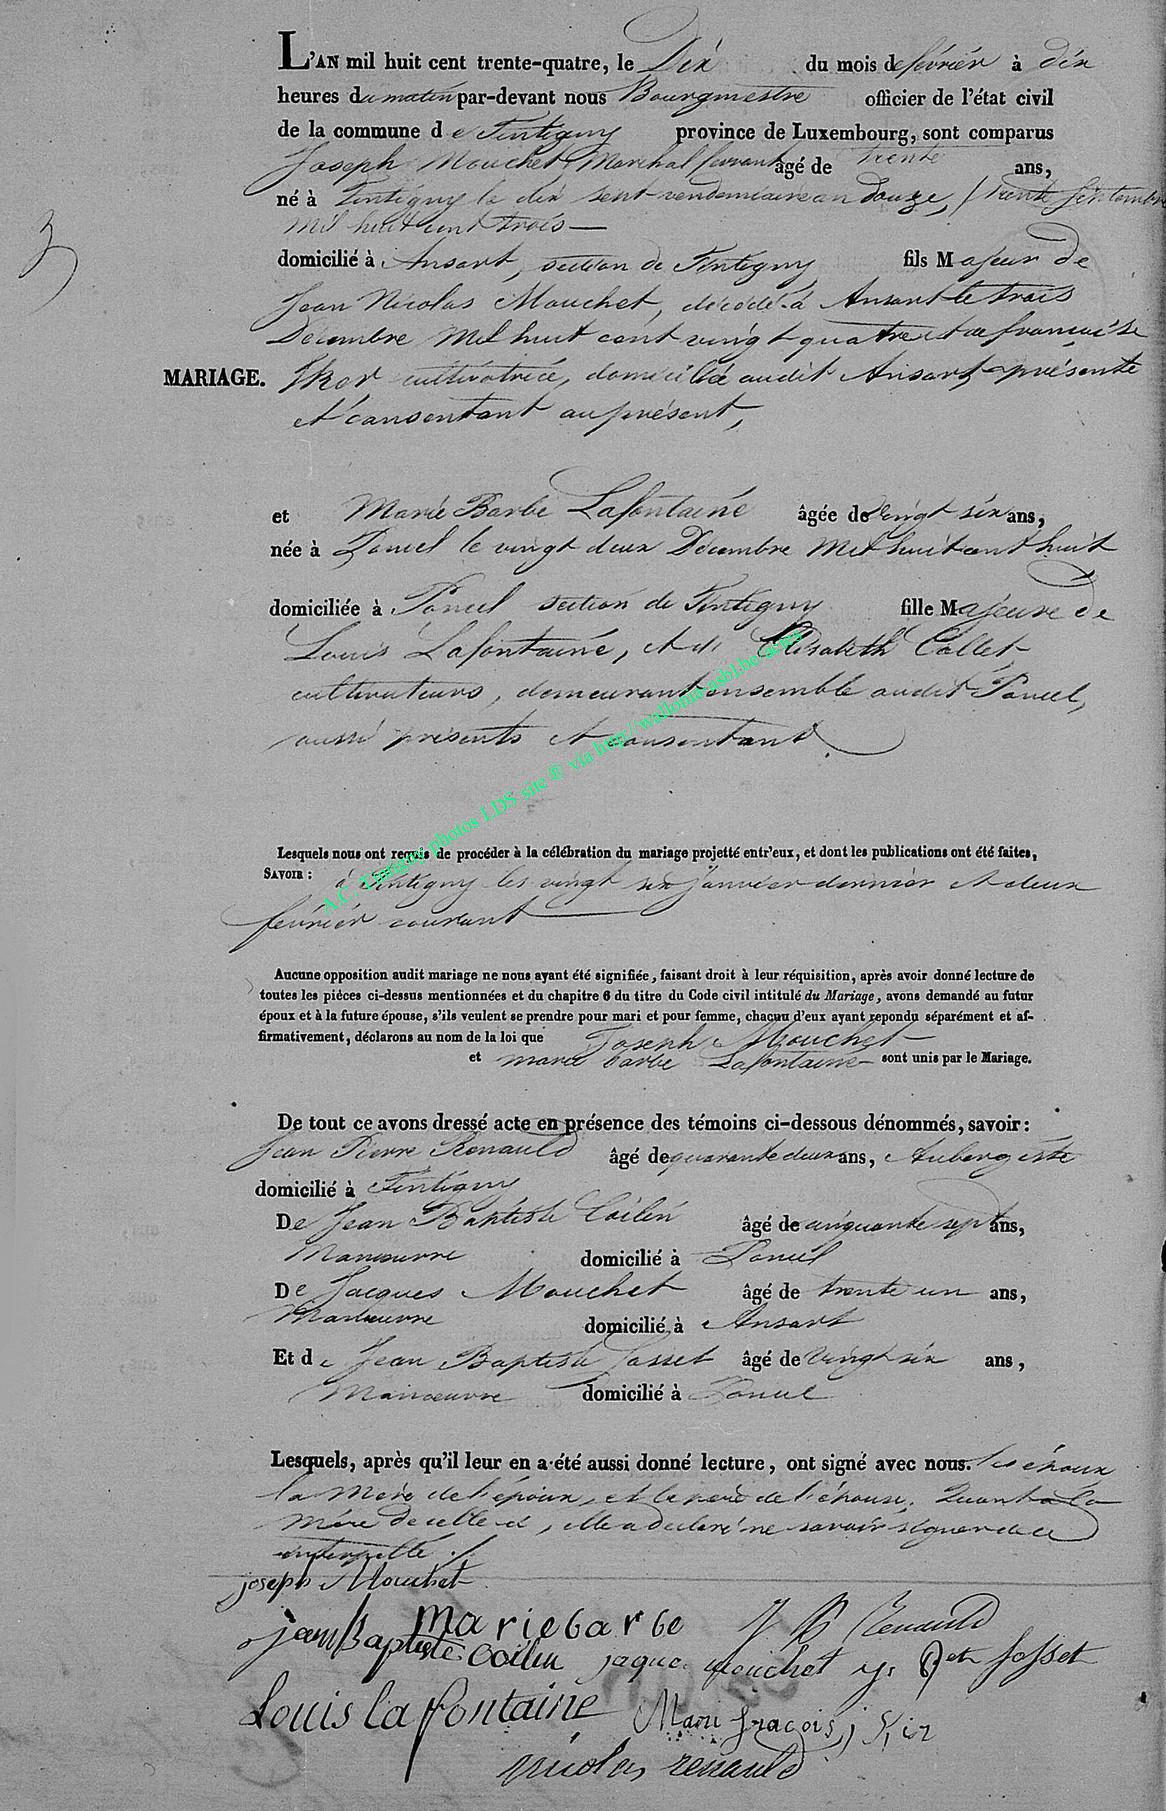 L'AN mil huit cent trente-quatre, le Dix du mois de février à dix
heures du matin par-devant nous Bourgmestre officier de l'état civil
de la commune d e Tintigny province de Luxembourg, sont comparus
Joseph Mouchet, Marechal ferrant âgé de trente ans,
né à Tintigny le dix sept vendemiaire an douze, / trente septembre
mil huit cent trois
domicilié à Ansart, section de Tintigny fils Majeur de
Jean Nicolas Mouchet, décédé à Ansart le trois
Décembre Mil huit cent vingt quatre et de françoise
MARIAGE. cultivatrice, domiciliée audit Ansart présente
et consentant au présent,
et Marie Barbe Lafontaine âgée de vingt six ans,
née à Poncel le vingt deux Décembre Mil huit cent huit
domiciliée à Poncel section de Tintigny fille Majeure de
Louis Lafontaine, et de Elisabeth Collet
cultivateurs, demeurant ensemble audit Poncel,
aussi présents et consentant.
Lesquels nous ont requis de procéder à la célébration du mariage projetté entr'eux, et dont les publications ont été faites,
SAVOIR : à Tintigny les vingt six janvier dernier et deux
février courant
Aucune opposition audit mariage ne nous ayant été signifiée, faisant droit à leur réquisition, après avoir donné lecture de
toutes les pièces ci-dessus mentionnées et du chapitre 6 du titre du Code civil intitulé du Mariage, avons demandé au futur
époux et à la future épouse, s'ils veulent se prendre pour mari et pour femme, chacun d'eux ayant repondu séparément et af-
firmativement, déclarons au nom de la loi que Joseph Mouchet
et marie barbe Lafontaine sont unis par le Mariage.
De tout ce avons dressé acte en présence des témoins ci-dessous dénommés, savoir:
Jean Pierre Renauld âgé de quarante deux ans, Aubergiste
domicilié à Tintigny
De Jean Baptiste Coilin âgé de cinquante sept ans,
Manoeuvre domicilié à Poncel
De Jacques Mouchet âgé de trente un ans,
Manoeuvre domicilié à Ansart
Et d e Jean Baptiste Fosset âgé de vingt six ans,
Manoeuvre domicilié à Poncel
Lesquels, après qu'il leur en a été aussi donné lecture, ont signé avec nous. les époux
la Mère de l'époux, et le père de l'épouse. Quant à la
mère de celle ci, elle a declaré ne savoir signer de ce
interpellé ./.
joseph Mouchet
Marie barbe Renauld
jean Baptiste Coilin jaque mouchet fosset
Louis la fontaine
nicolas renauld
A.C. Tintigny photos LDS site ® via http://wallonia-asbl.be/